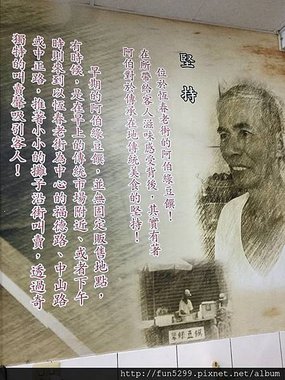 堅持
位於恆春老街的阿伯綠豆饌！
在所帶給客人滋味感受背後，其實有著
阿伯對於傳承在地傳統美食的堅持！
早期的阿伯綠豆饌，並無固定販售地點，
有時候，是在早上的傳統市場附近、或者下午
時則來到以恆春老街為中心的福德路、中山路
或中正路，推著小小的攤子沿街叫賣，透過奇
獨特的叫賣聲吸引客人！
饌豆綠
http://fun5299.pixnet.net/album